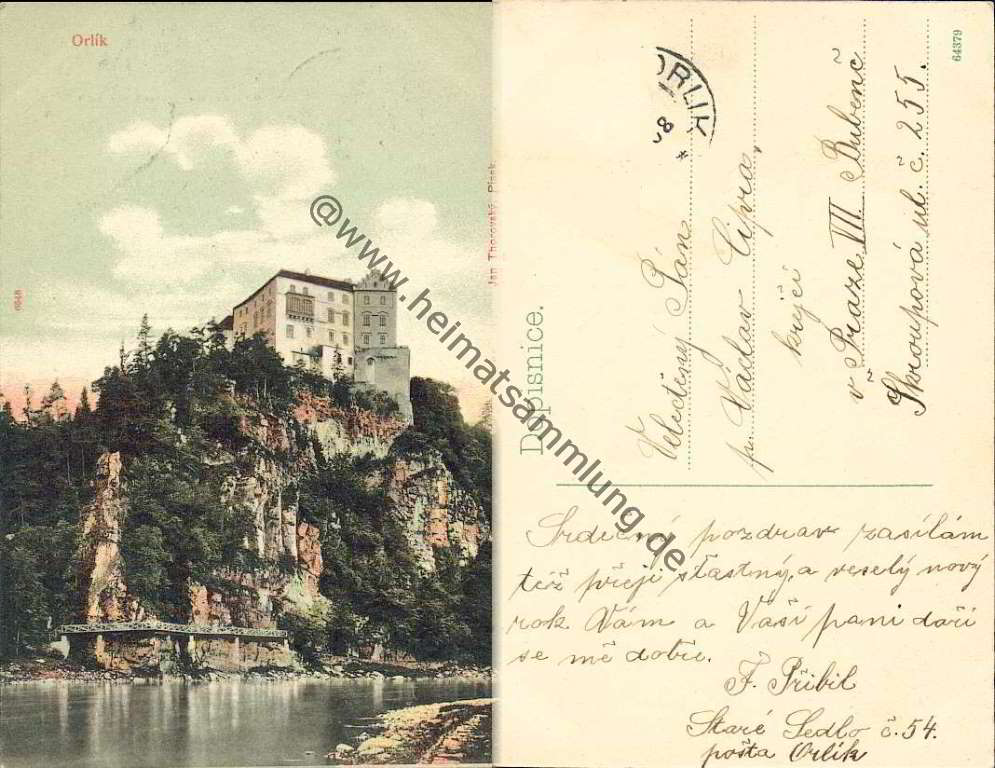 Orlík
6648
Jan Thorovský, Písek
@www.heimatsammlung.de
64379
ORLIK
Dopisnice.
Velectěný Pán
p. Václav Cipra,
krejčí
v Praze VII Bubenč
Škroupová ul. č. 255.
Srdečný pozdrav zasílám
též přeji štastný, a veselý nový
rok Vám a Vaší paní daří
se mě dobře.
F. Přibil
Staré Sedlo č. 54.
pošta Orlík